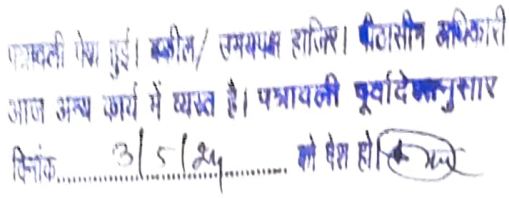 पत्रावली पेश हुई। वकील/ उभयपक्ष हाजिर। पीठासीन अधिकारी
आज अन्य कार्य में व्यस्त है। पत्रावली पूर्वादेशानुसार
दिनांक......3/5/24...... को पेश हो।